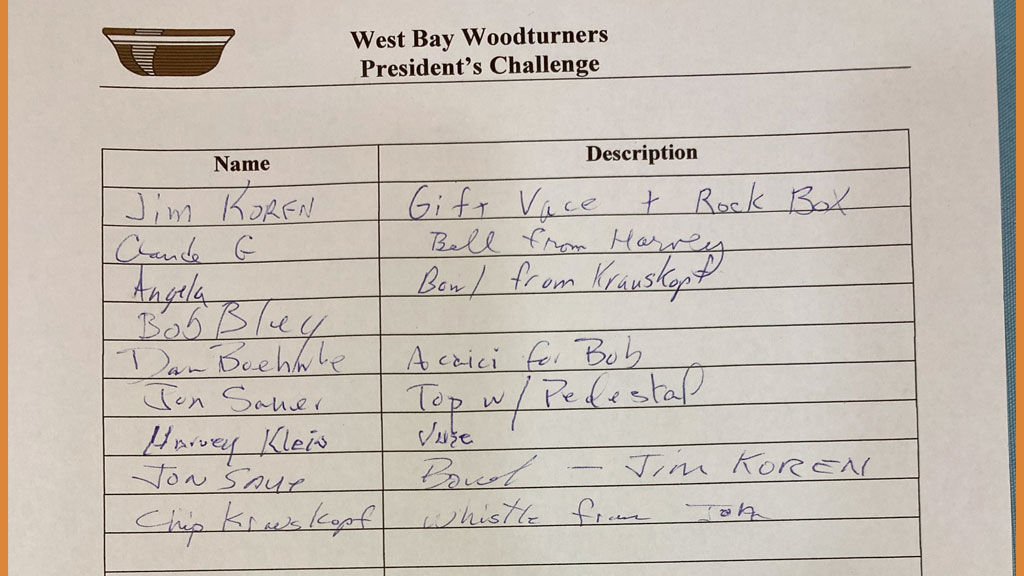 West Bay Woodturners
President's Challenge
Name Description
Jim KOREN Gift Vace + Rock Box
Claude G Bell from Harvey
Angela Bowl from Krauskopf
Bob Bley
Dan Boehnke Acaici for Bob
Jon Sauer Top w/ Pedestal
Harvey Klein Vase
JON SAUER Bowl — JIM KOREN
Chip Krauskopf Whistle from John